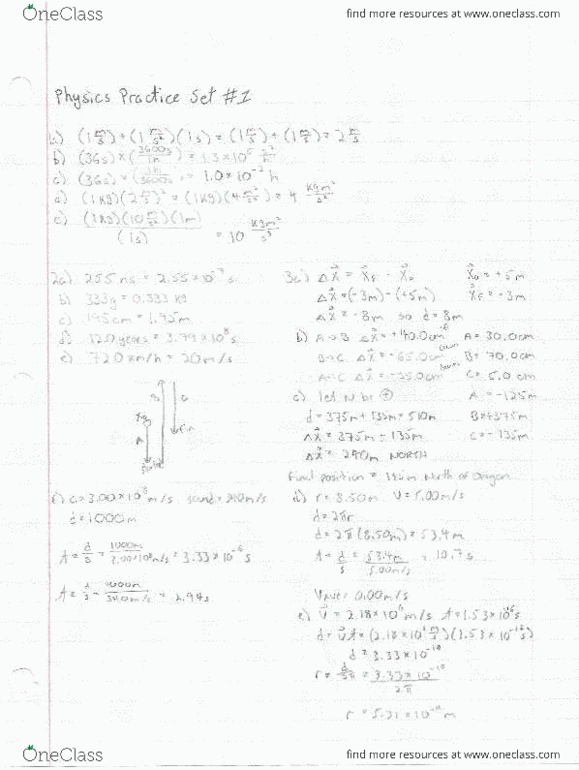 OneClass
find more resources at www.oneclass.com
Physics Practice Set #1
(1 m/s) + (1 m/s²)(1s) = (1 m/s) + (1 m/s) = 2 m/s
b) (36s) × (3600s/1h) = 1.3 × 10⁵ s²/h
c) (36s) × (1h/3600s) = 1.0 × 10⁻² h
d) (1kg)(2 m/s)² = (1kg)(4 m²/s²) = 4 kgm²/s²
e) (1kg)(10 m/s²)(1m) / (1s) = 10 kgm²/s³
2a) 255 ns = 2.55 × 10⁻⁷ s
b) 333g = 0.333 kg
c) 195cm = 1.95m
d) 12.0 years = 3.79 × 10⁸ s
e) 720 km/h = 20 m/s
f) c = 3.00 × 10⁸ m/s
d = 1000m
= 1000m / 3.00×10⁸ m/s = 3.33 × 10⁻⁶ s
= 1000m / 340m/s = 2.94s
3a) Δx = x_F - x_0 x_0 = +5m
Δx = (-3m) - (+5m) x_F = -3m
Δx = -8m so d = 8m
b) A→B Δx = +40.0cm A = 30.0cm
B→C Δx = -65.0cm B = 70.0cm
A→C Δx = -25.0cm C = 5.0 cm
c) let N be ⊕ A = -125m
d = 375m + 135m = 510m
Δx = 375m - 135m C = -135m
Δx = 240m NORTH
Final position = North of Origin
d) r = 8.50m V = 5.00m/s
d = 2πr
d = 2π(8.50m) = 53.4m
= 53.4m / 5.00m/s = 10.7s
Vave = 0.00m/s
e) V = 2.18 × 10⁶ m/s
d = 3.33 × 10⁻¹⁰
r = d/2π = 3.33 × 10⁻¹⁰ / 2π
r = 5.31 × 10⁻¹¹ m
OneClass
find more resources at www.oneclass.com